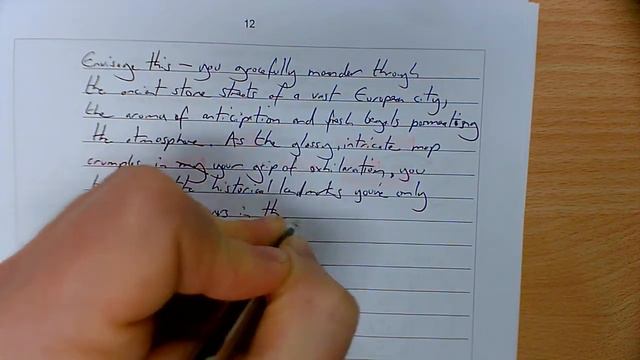 12
Envisage this – you gracefully meander through
the ancient stone streets of a vast European city,
the aroma of anticipation and fresh bagels permeating
the atmosphere. As the glossy, intricate map
crumples in my your grip of exhilaration, you
the historical landmarks you've only
in th